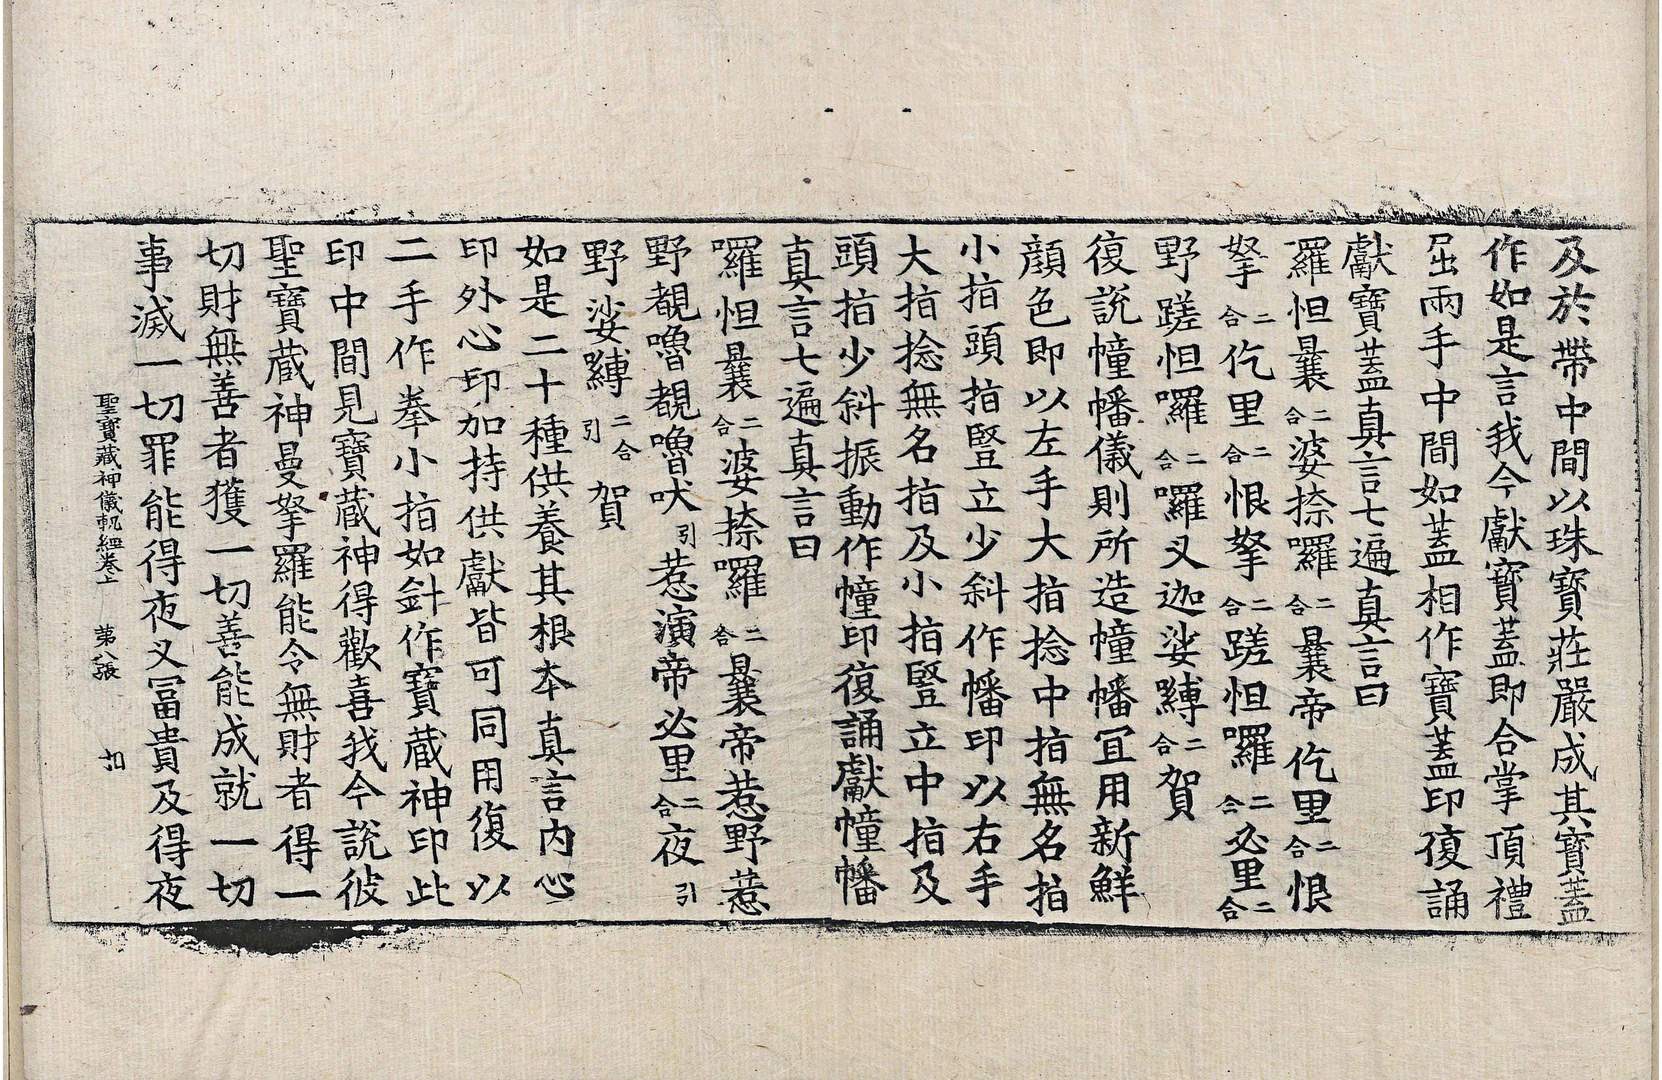 及於帶中間以珠寶莊嚴成其寶蓋
作如是言我今獻寶蓋即合掌頂禮
屈兩手中間如蓋相作寶蓋印復誦
獻寶蓋真言七遍真言曰
羅怛曩二合婆捺囉二合曩帝仡里二合恨
拏二合仡里二合恨拏二合蹉怛囉二合必里二合
野蹉怛囉二合囉叉迦娑嚩二合賀
復說幢幡儀則所造幢幡冝用新鮮
顔色即以左手大指捻中指無名指
小指頭指竪立少斜作幡印以右手
大指捻無名指及小指竪立中指及
頭指少斜振動作幢印復誦獻幢幡
真言七遍真言曰
囉怛曩二合婆捺囉二合曩帝惹野惹
野覩嚕覩嚕吠引惹演帝必里二合夜引
野娑嚩二合引賀
如是二十種供養其根本真言內心
印外心印加持供獻皆可同用復以
二手作拳小指如針作寶藏神印此
印中間見寶藏神得歡喜我今說彼
聖寶藏神曼拏羅能令無財者得一
切財無善者獲一切善能成就一切
事滅一切罪能得夜叉冨貴及得夜
聖寶藏神儀軌經卷上　第八張